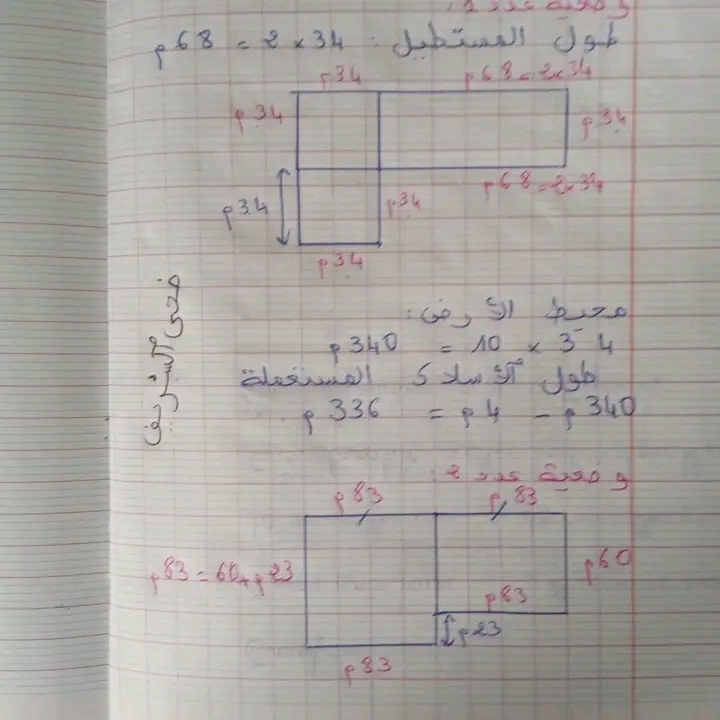 وضعية عدد 1:
طول المستطيل: 34 × 2 = 68 م
34 م
34 × 2 = 68 م
34 م
34 م
34 × 2 = 68 م
34 م
34 م
34 م
محيط الأرض:
34 × 10 = 340 م
طول الأسلاك المستعملة
340 م - 4 م = 336 م
وضعية عدد 2:
83 م
83 م
23 م + 60 = 83 م
60 م
83 م
23 م
83 م